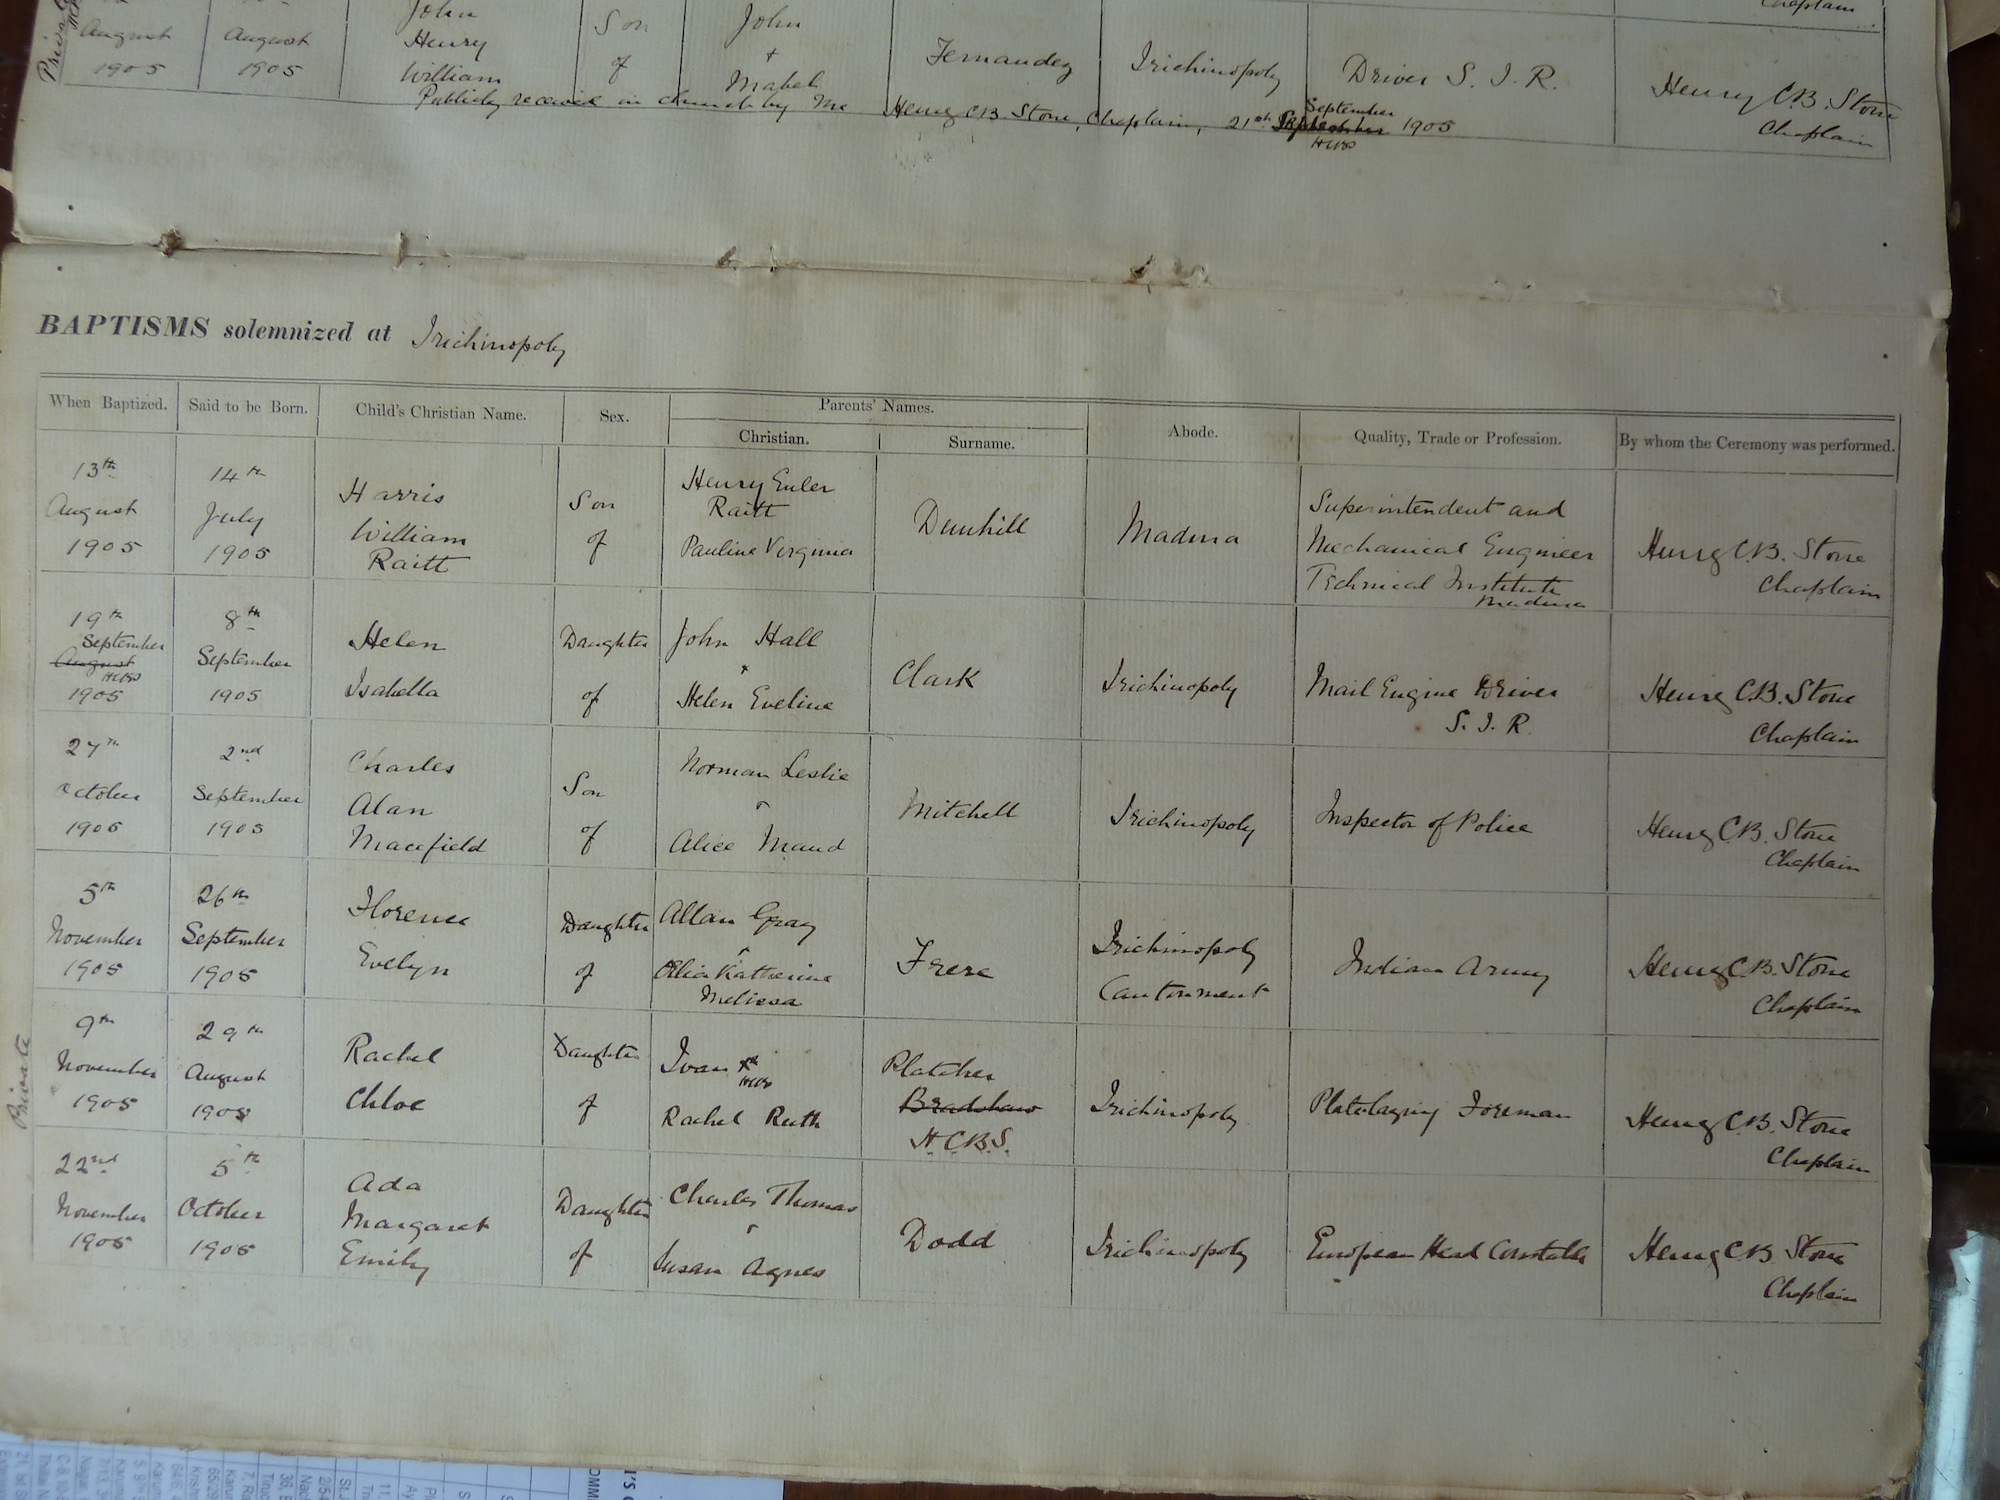 Chaplain
August August John Son John
Henry of + Fernandez Trichinopoly Driver S. I. R. Henry C.B. Stone
1905 1905 William Mabel Chaplain
Publicly received in church by me Henry C B Stone, Chaplain, 21st September 1905
September
HCBS
BAPTISMS solemnized at Trichinopoly
When Baptized. Said to be Born. Child's Christian Name. Sex. Parents' Names. Abode. Quality, Trade or Profession. By whom the Ceremony was performed.
Christian. Surname.
13th 14th Harris Son Henry Euler Dunhill Madura Superintendent and Henry C.B. Stone
August July William of Raitt Mechanical Engineer Chaplain
1905 1905 Raitt Pauline Virginia Technical Institute
Madura
19th 8th Helen Daughter John Hall Clark Trichinopoly Mail Engine Driver Henry C.B. Stone
September September Isabella of + S. I. R. Chaplain
August
HCBS
1905 1905 Helen Eveline
27th 2nd Charles Son Norman Leslie Mitchell Trichinopoly Inspector of Police Henry C.B. Stone
October September Alan of + Chaplain
1905 1905 Macefield Alice Maud
5th 26th Florence Daughter Allan Gray Frere Trichinopoly Indian Army Henry C.B. Stone
November September Evelyn of + Cantonment Chaplain
1905 1905 Katherine
Melissa
Private
9th 29th Rachel Daughter Ivan Platcher Trichinopoly Platelaying Foreman Henry C.B. Stone
November August Chloe of HCBS Bradshaw Chaplain
1905 1905 Rachel Ruth H.C.B.S.
22nd 5th Ada Daughter Charles Thomas Dodd Trichinopoly European Head Constable Henry C.B. Stone
November October Margaret of + Chaplain
1905 1905 Emily Susan Agnes